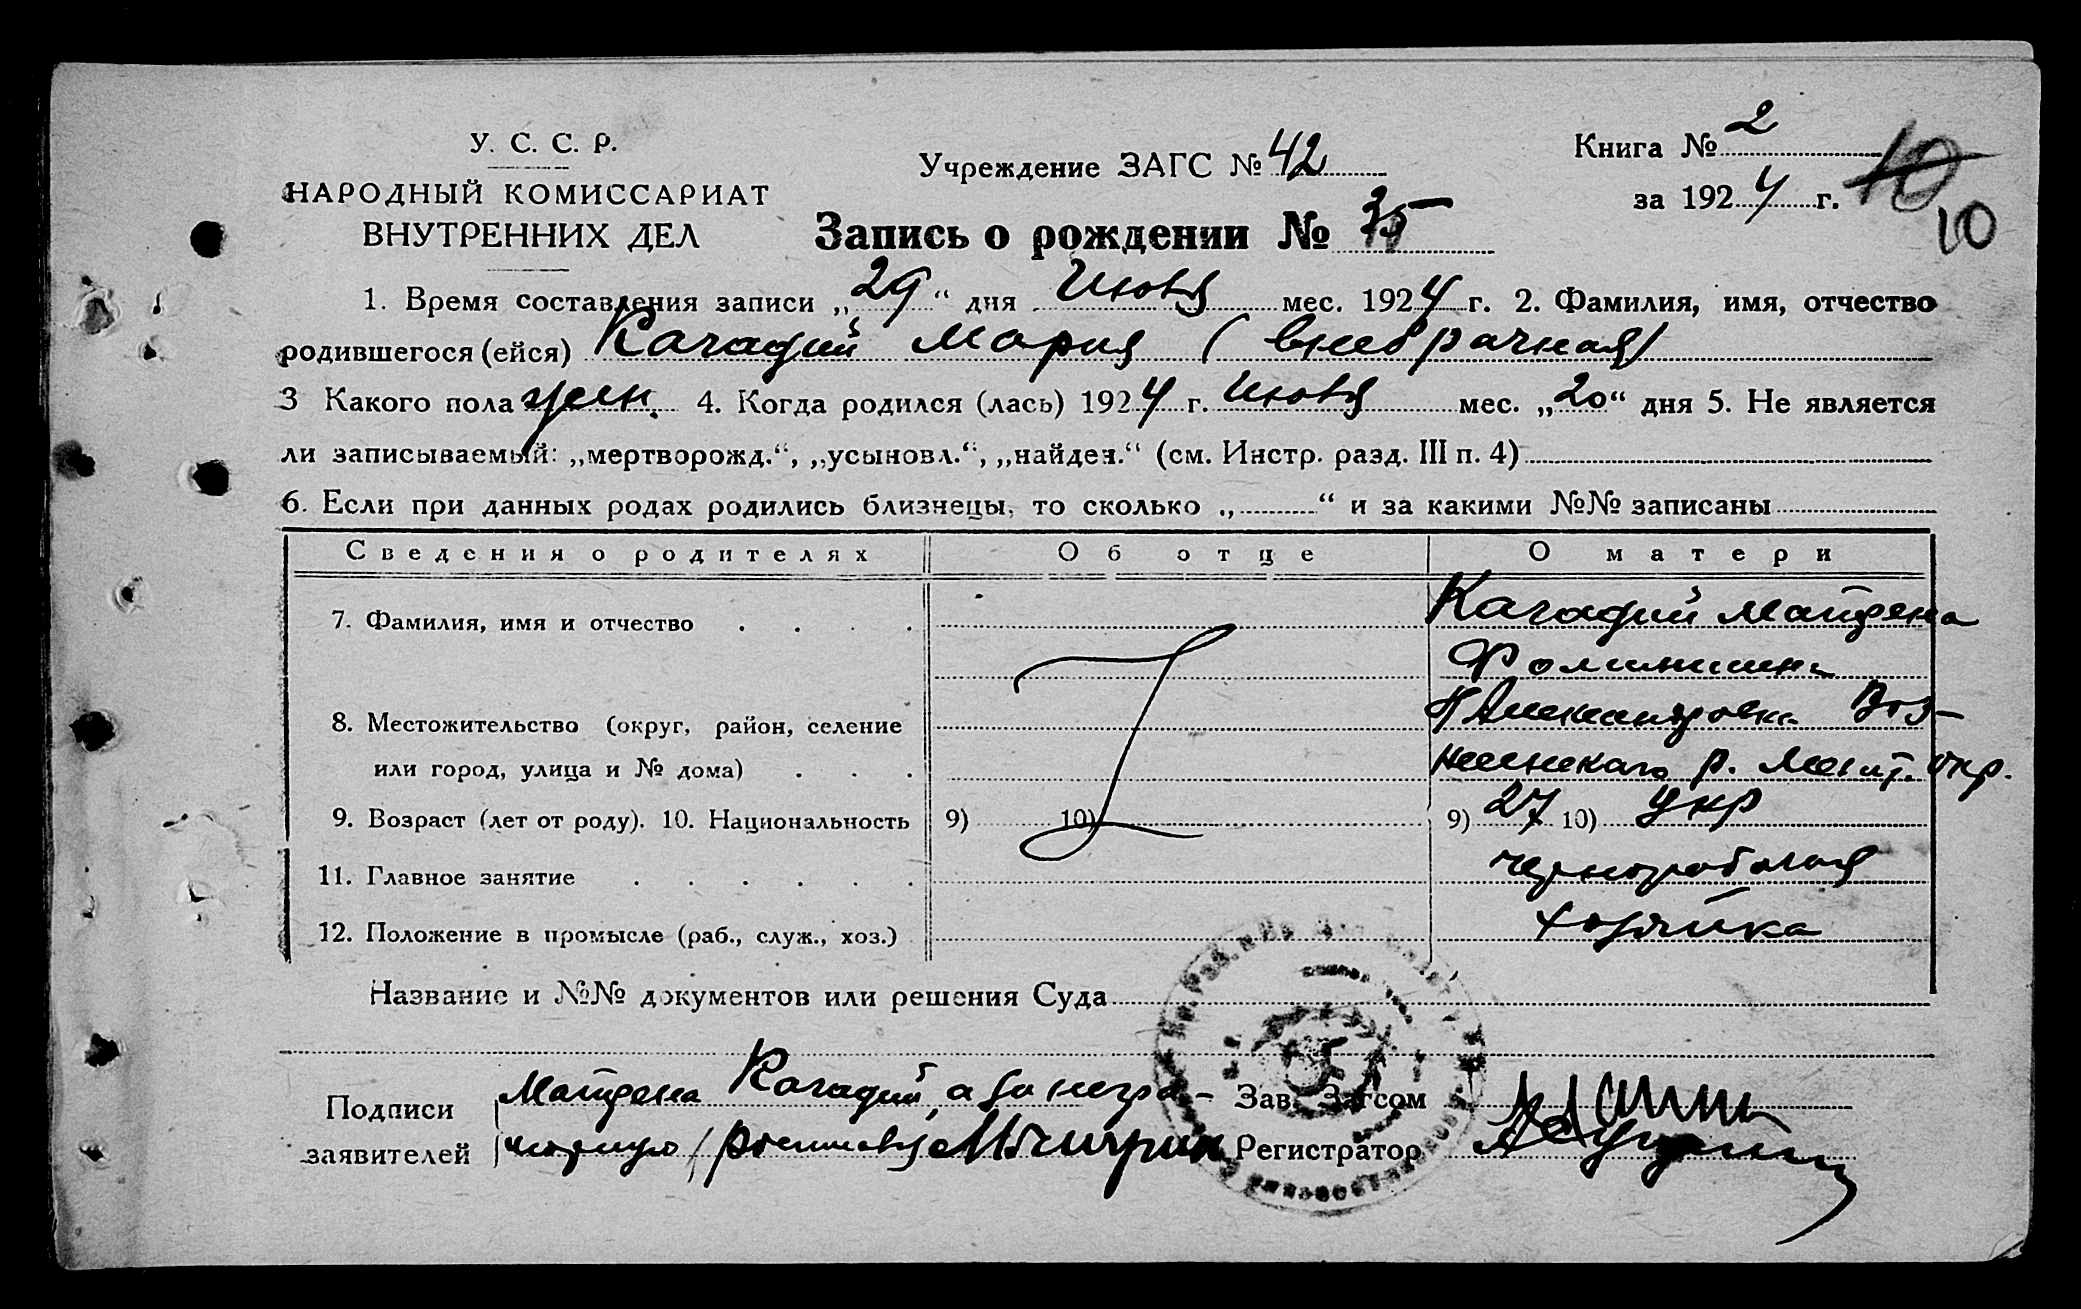 У. С. С. Р.
НАРОДНЫЙ КОМИССАРИАТ
ВНУТРЕННИХ ДЕЛ
Учреждение ЗАГС № 42
Книга № 2
за 1924 г.
10
10
Запись о рождении № 35
1. Время составления записи „29“ дня Июня мес. 1924 г. 2. Фамилия, имя, отчество
родившегося (ейся) Качадий Мария (внебрачная)
3 Какого пола жен. 4. Когда родился (лась) 1924 г. Июня мес. „20“ дня 5. Не является
ли записываемый: „мертворожд.“, „усыновл.“, „найден.“ (см. Инстр. разд. III п. 4)
6. Если при данных родах родились близнецы, то сколько „ “ и за какими №№ записаны
Сведения о родителях Об отце О матери
7. Фамилия, имя и отчество Качадий Матрена
8. Местожительство (округ, район, селение Воз-
или город, улица и № дома) р. Мелит. окр.
9. Возраст (лет от роду). 10. Национальность 9) 10) 9) 27 10) укр
11. Главное занятие чернорабочая
12. Положение в промысле (раб., служ., хоз.) хозяйка
Название и №№ документов или решения Суда
Подписи Матрена Качадий, а за негра- Зав. Загсом
заявителей мотную Регистратор